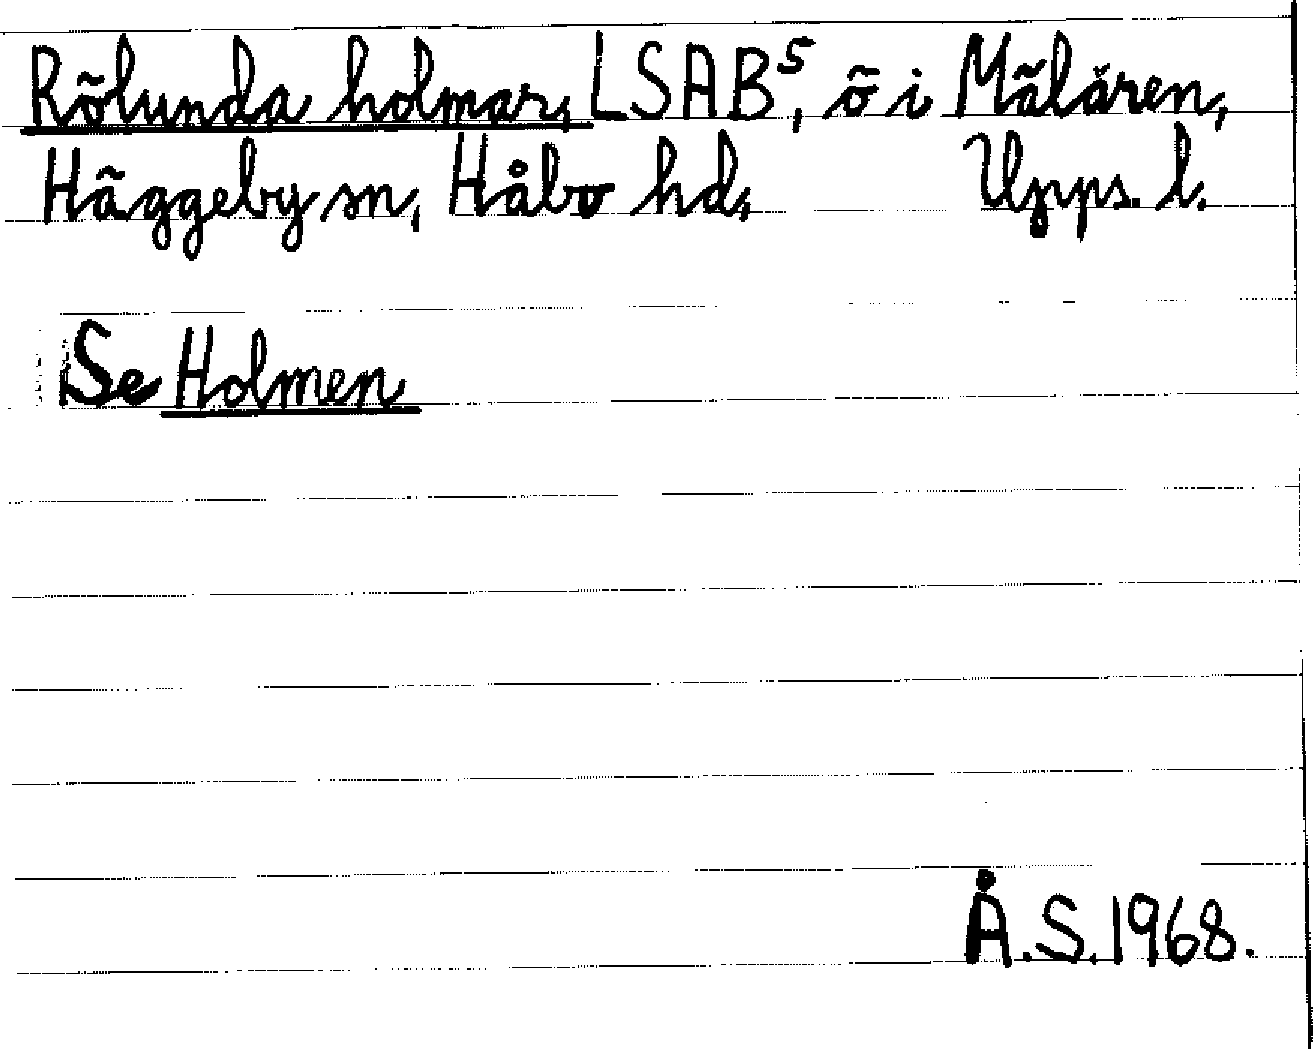 Rölunda holmar, LSAB⁵, ö i Mälaren,
Häggeby sn, Håbo hd, Upps. l.
Se Holmen
Å.S. 1968.